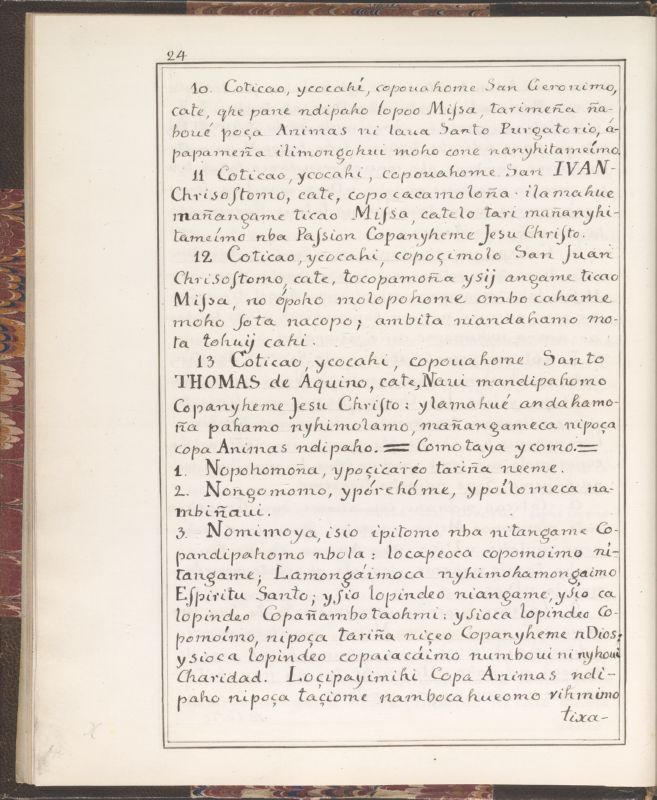 24
10. Coticao, ycocahí, copouahome San Geronimo,
cate, qhe pane ndipaho lopoo Miſsa, tarimeña ña-
boué poça Animas ni laua Santo Purgatorio, á-
papameña ilimongohui moho cone nanyhitameímo.
11 Coticao, ycocahi, copouahome San IVAN-
Chrisoſtomo, cate, copo cacamoloña. ilamahue
mañangame ticao Miſsa, catelo tari mañanyhi-
tameímo nba Paſsion Copanyheme Jesu Chriſto.
12 Coticao, ycocahi, copoçimolo San Juan
Chrisoſtomo, cate, tocopamoña ysij angame ticao
Miſsa, no ópoho molopohome ombo cahame
moho ſota nacopo; ambita niandahamo mo-
ta tohuij cahi.
13 Coticao, ycocahi, copouahome Santo
THOMAS de Aquino, cate, Naui mandipahomo
Copanyheme Jesu Chriſto: ylamahué andahamo-
ña pahamo nyhimolamo, mañangameca nipoça
copa Animas ndipaho. = Comotaya ycomo. =
1. Nopohomoña, ypoçicareo tariña neeme.
2. Nongomomo, ypórehóme, ypoílomeca na-
mbiñaui.
3. Nomimoya, isio ipitomo nba nitangame Co-
pandipahomo nbola: locapeoca copomoimo ni-
tangame; Lamongáimoca nyhimohamongaimo
Eſpiritu Santo; yſio lopindeo niangame, yſio ca
lopindeo Copañambotaohmi: ysioca lopindeo Co-
pomoímo, nipoça tariña niçeo Copanyheme nDios;
ysioca lopindeo copaiacáimo numboui ni nyhoui
Charidad. Loçipayimihi Copa Animas ndi-
paho nipoça taçiome nambocahueomo vihmimo
tixa-